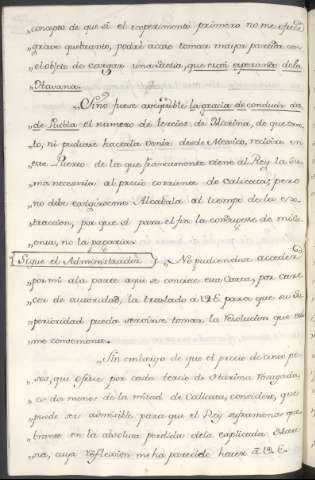 „concepto de que si el experimento primero no me ofrece
„grave quebranto, podré acaso tomar mayor partida con
„el objeto de cargar una Bestia, que estoi esperando de la
„Havana.
„Sino fuere asequible la gracia de conducir des
„de Puebla el numero de tercios de Harina, de que tra
„to, ni pudiese hacerla venir desde Mexico, reciviré en
„este Puerto de la que francamente viene al Rey la su
„ma necesaria al precio corriente de Calicata; pero
„no debe exigirseme Alcabala al tiempo de la ex
„traccion, por que si para el fin la condugese de mi
„cuenta, no la pagaria.
Sigue el Administrador „No pudiendose acceder
„por mi a la parte aqui se contiene esa Carta, por care
„cer de autoridad, la traslado a V.E. para que su Su
„perioridad pueda servirse tomar la resolucion que es
„time conveniente.
„Sin embargo de que el precio de cinco pe
„sos, que ofrece por cada tercio de Harina rezagada
„es dos menos de la mitad de Calicata, considero, que
„puede ser admisible para que el Rey sufra menos que
„branto en la absoluta perdida de la explicada Hari
„na, cuya reflexion me ha parecido hacer a V.E.